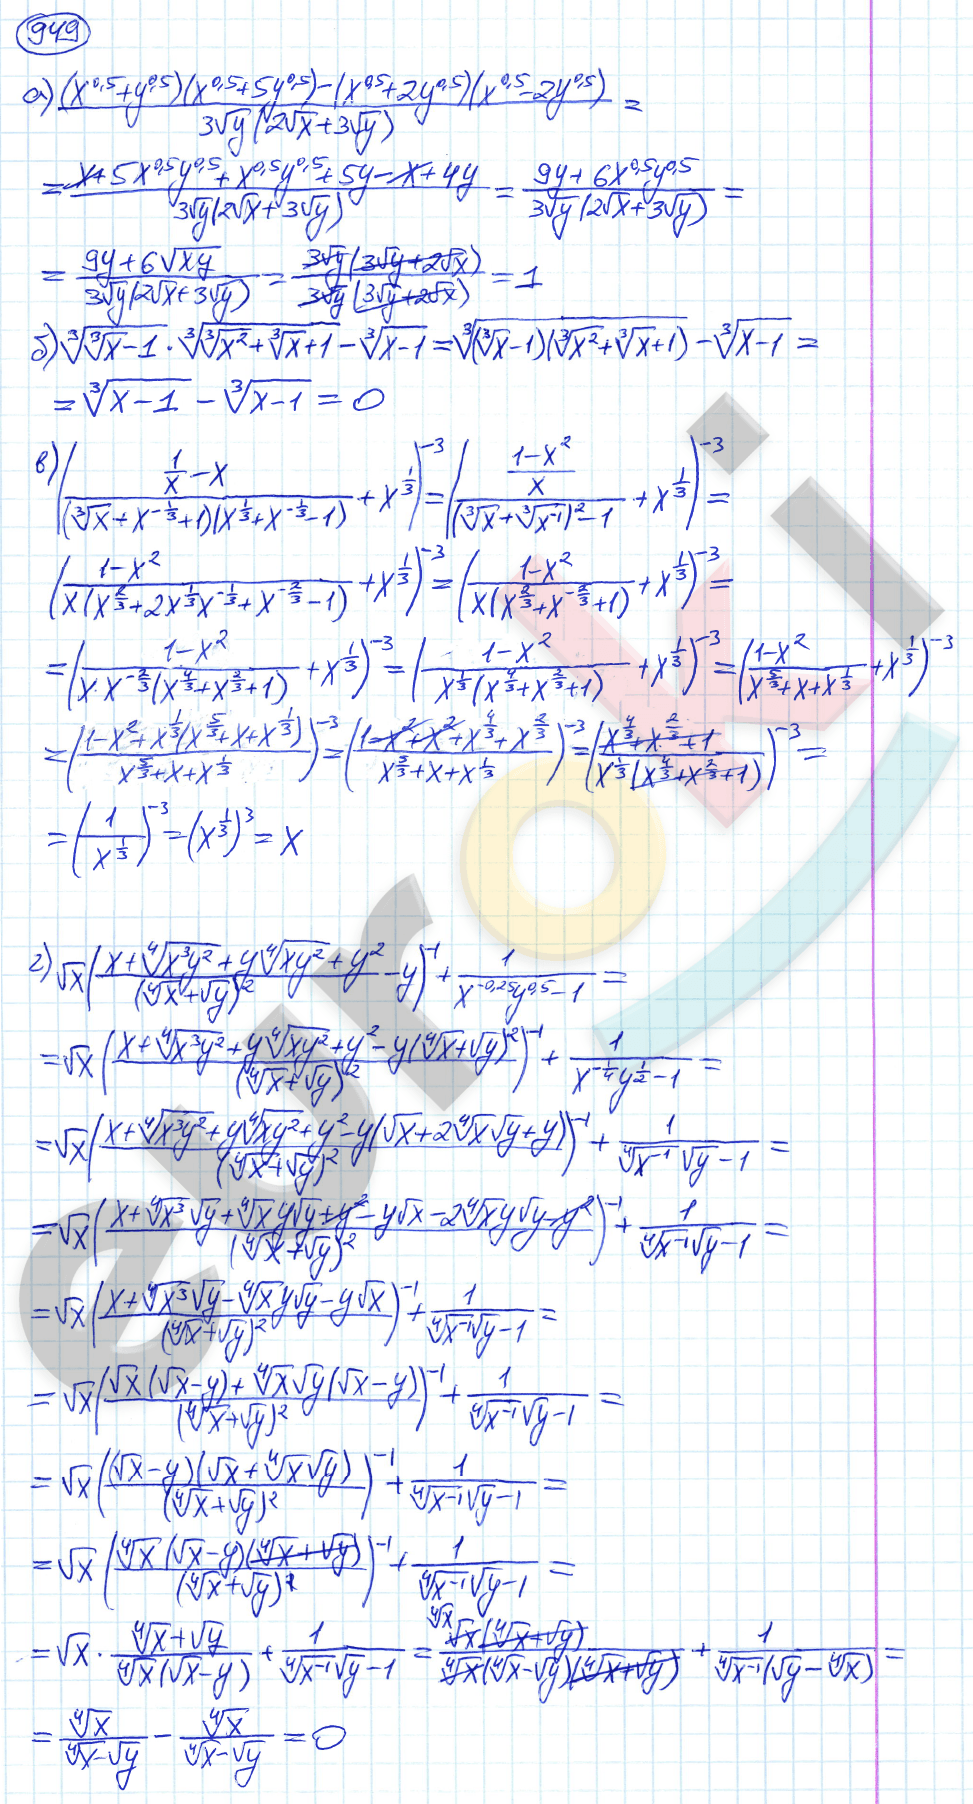 949
а) ((x^0,5+y^0,5)(x^0,5+5y^0,5)-(x^0,5+2y^0,5)(x^0,5-2y^0,5))/(3√y(2√x+3√y)) =
= (x+5x^0,5y^0,5+x^0,5y^0,5+5y-x+4y)/(3√y(2√x+3√y)) = (9y+6x^0,5y^0,5)/(3√y(2√x+3√y)) =
= (9y+6√xy)/(3√y(2√x+3√y)) = (3√y(3√y+2√x))/(3√y(3√y+2√x)) = 1
б) ∛(∛x-1)·∛(∛x²+∛x+1)-∛(x-1) = ∛((∛x-1)(∛x²+∛x+1))-∛(x-1) =
= ∛(x-1)-∛(x-1) = 0
в) ((1/x-x)/((∛x+x^(-1/3)+1)(x^(1/3)+x^(-1/3)-1))+x^(1/3))^-3 = (((1-x²)/x)/((∛x+∛(x^-1))²-1)+x^(1/3))^-3 =
((1-x²)/(x(x^(2/3)+2x^(1/3)x^(-1/3)+x^(-2/3)-1))+x^(1/3))^-3 = ((1-x²)/(x(x^(2/3)+x^(-2/3)+1))+x^(1/3))^-3 =
= ((1-x²)/(x·x^(-2/3)(x^(4/3)+x^(2/3)+1))+x^(1/3))^-3 = ((1-x²)/(x^(1/3)(x^(4/3)+x^(2/3)+1))+x^(1/3))^-3 = ((1-x²)/(x^(5/3)+x+x^(1/3))+x^(1/3))^-3
= ((1-x²+x^(1/3)(x^(5/3)+x+x^(1/3)))/(x^(5/3)+x+x^(1/3)))^-3 = ((1-x²+x²+x^(4/3)+x^(2/3))/(x^(5/3)+x+x^(1/3)))^-3 = ((x^(4/3)+x^(2/3)+1)/(x^(1/3)(x^(4/3)+x^(2/3)+1)))^-3 =
= (1/x^(1/3))^-3 = (x^(1/3))^3 = x
г) √x((x+∜(x³y²)+y∜(xy²)+y²)/(∜x+√y)²-y)^-1+1/(x^-0,25y^0,5-1) =
= √x((x+∜(x³y²)+y∜(xy²)+y²-y(∜x+√y)²)/(∜x+√y)²)^-1+1/(x^(-1/4)y^(1/2)-1) =
= √x((x+∜(x³y²)+y∜(xy²)+y²-y(√x+2∜x√y+y))/(∜x+√y)²)^-1+1/(∜(x^-1)√y-1) =
= √x((x+∜x³√y+∜xy√y+y²-y√x-2∜xy√y-y²)/(∜x+√y)²)^-1+1/(∜(x^-1)√y-1) =
= √x((x+∜x³√y-∜xy√y-y√x)/(∜x+√y)²)^-1+1/(∜(x^-1)√y-1) =
= √x((√x(√x-y)+∜x√y(√x-y))/(∜x+√y)²)^-1+1/(∜(x^-1)√y-1) =
= √x(((√x-y)(√x+∜x√y))/(∜x+√y)²)^-1+1/(∜(x^-1)√y-1) =
= √x((∜x(√x-y)(∜x+√y))/(∜x+√y)²)^-1+1/(∜(x^-1)√y-1) =
= √x·(∜x+√y)/(∜x(√x-y))+1/(∜(x^-1)√y-1) = ∜x √x(∜x+√y)/(∜x(∜x-√y)(∜x+√y))+1/(∜(x^-1)(√y-∜x)) =
= ∜x/(∜x-√y)-∜x/(∜x-√y) = 0
euroki